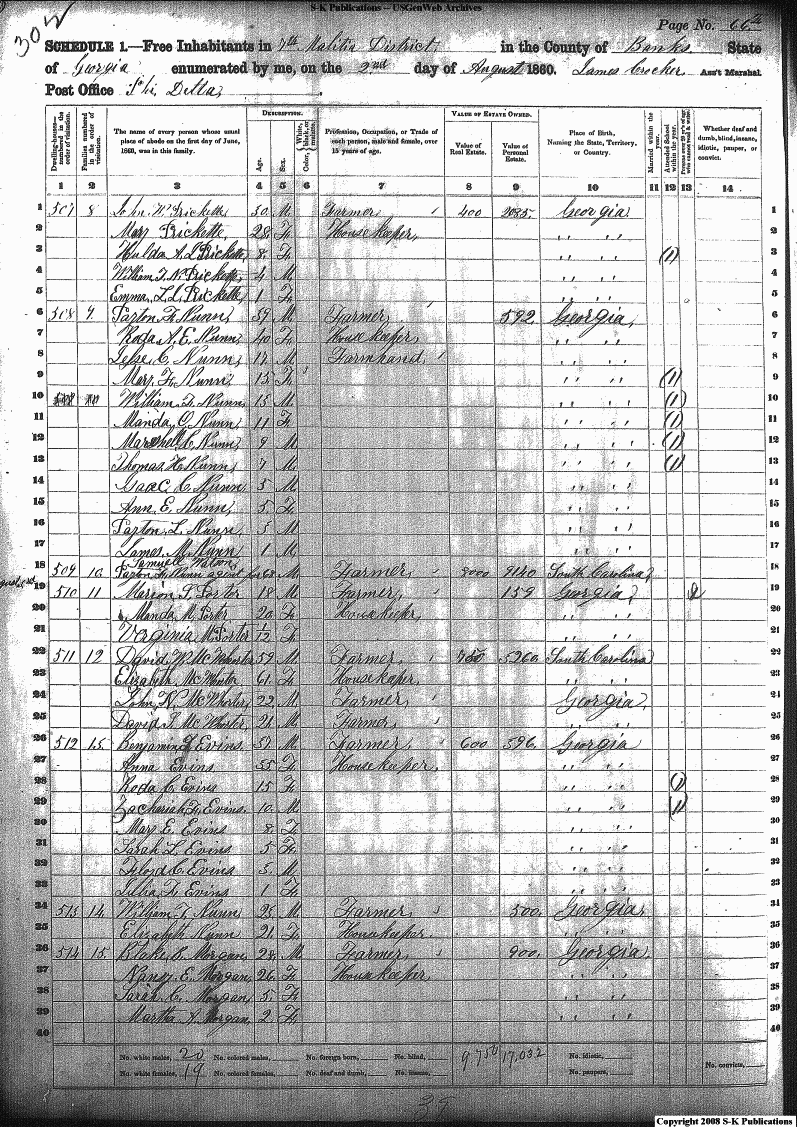 S-K Publications -- USGenWeb Archives
Page No. 66
302
SCHEDULE 1.—Free Inhabitants in 7th Malitia District, in the County of Banks State
of Georgia enumerated by me, on the 2nd day of August 1860. James Crocker Ass't Marshal.
Post Office Phi Delta,
Dwelling-houses—numbered in the order of visitation.
Families numbered in the order of visitation.
The name of every person whose usual place of abode on the first day of June, 1860, was in this family.
DESCRIPTION.
Age.
Sex.
Color, White, black, or mulatto.
Profession, Occupation, or Trade of each person, male and female, over 15 years of age.
VALUE OF ESTATE OWNED.
Value of Real Estate.
Value of Personal Estate.
Place of Birth, Naming the State, Territory, or Country.
Married within the year.
Attended School within the year.
Persons over 20 y'rs of age who cannot read & write.
Whether deaf and dumb, blind, insane, idiotic, pauper, or convict.
1 2 3 4 5 6 7 8 9 10 11 12 13 14
1 507 8 John W. Prickett 30 M Farmer 400 2085 Georgia 1
2 Mary Prickett 28 F Housekeeper " " 2
3 Hulda A L Prickett 8 F " " (1) 3
4 William T. N. Prickett 4 M " " 4
5 Emma L. L. Prickett 1 F " " 5
6 508 9 Parton F. Nunn 59 M Farmer 592 Georgia 6
7 Roda A. E. Nunn 40 F Housekeeper " " 7
8 Jesse C. Nunn 17 M Farmhand " " 8
9 Mary F. Nunn 15 F " " (1) 9
10 William D. Nunn 15 M " " (1) 10
11 Manda C. Nunn 11 F " " (1) 11
12 Marshell C. Nunn 9 M " " (1) 12
13 Thomas H. Nunn 7 M " " (1) 13
14 Isaac C. Nunn 5 M " " 14
15 Ann E. Nunn 5 F " " 15
16 Parton L. Nunn 5 M " " 16
17 James M. Nunn 1 M " " 17
18 509 10 Samuell Watson
Parton F. Nunn agent for 68 M Farmer 8000 9140 South Carolina 18
19 510 11 Marion P. Porter 18 M Farmer 159 Georgia 19
20 Manda M. Porter 20 F Housekeeper " " 20
21 Virginia M. Porter 1/12 F " " 21
22 511 12 David W. McWhorter 59 M Farmer 750 5260 South Carolina 22
23 Elizabeth McWhorter 61 F Housekeeper " " 23
24 John N. McWhorter 22 M Farmer Georgia 24
25 David P. McWhorter 21 M Farmer " " 25
26 512 13 Benjamin F Evins 57 M Farmer 600 596 Georgia 26
27 Anna Evins 55 F Housekeeper " " 27
28 Roda C. Evins 15 F " " (1) 28
29 Zachariah F. Evins 10 M " " (1) 29
30 Mary E. Evins 8 F " " 30
31 Sarah L. Evins 5 F " " 31
32 Floyd C. Evins 5 M " " 32
33 F. Evins 1 F " " 33
34 513 14 William T. Nunn 25 M Farmer 500 Georgia 34
35 Elizabeth Nunn 21 F Housekeeper " " 35
36 514 15 Blake B. Morgan 28 M Farmer 900 Georgia 36
37 Nancy E. Morgan 26 F Housekeeper " " 37
38 Sarah C. Morgan 5 F " " 38
39 Martha A. Morgan 2 F " " 39
40 40
No. white males, 20 No. colored males, No. foreign born, No. blind, 9750 17,032 No. idiotic, No. convicts,
No. white females, 19 No. colored females, No. deaf and dumb, No. insane, No. paupers,
39
Copyright 2008 S-K Publications